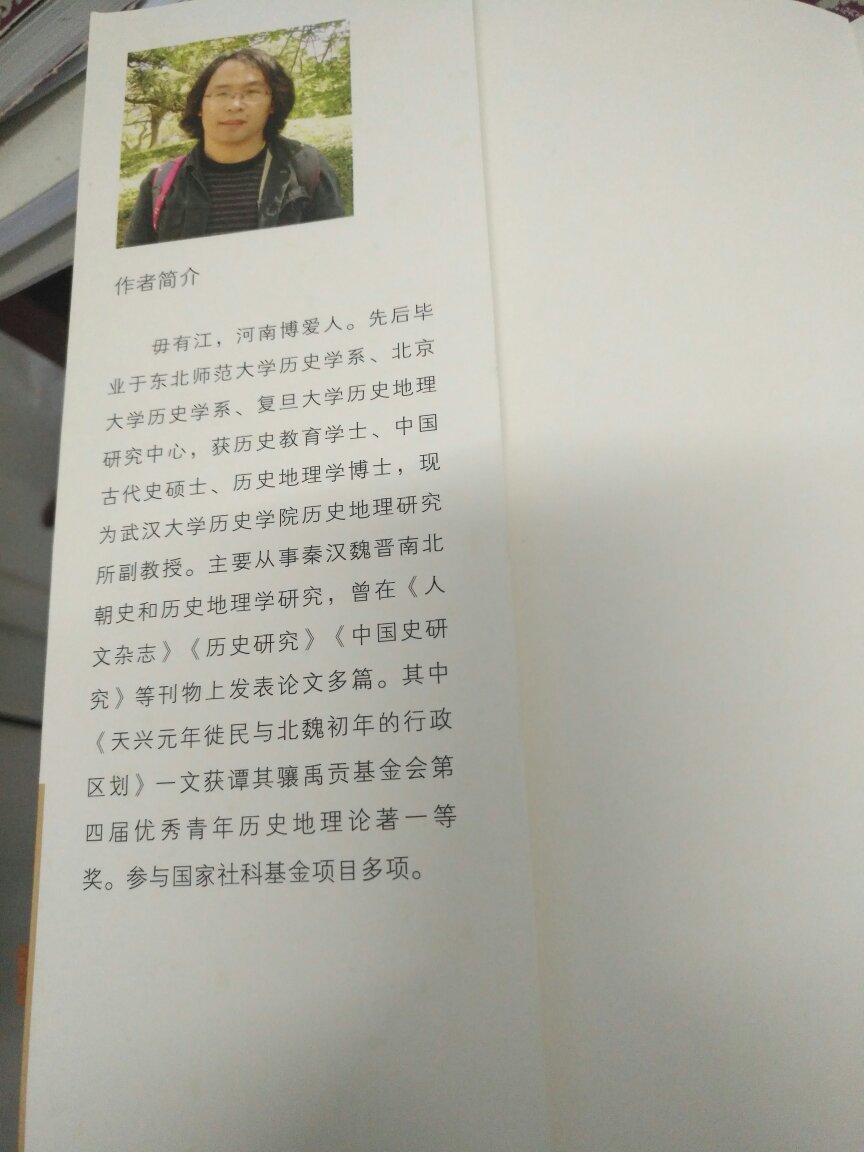 作者简介
毋有江，河南博爱人。先后毕
业于东北师范大学历史学系、北京
大学历史学系、复旦大学历史地理
研究中心，获历史教育学士、中国
古代史硕士、历史地理学博士，现
为武汉大学历史学院历史地理研究
所副教授。主要从事秦汉魏晋南北
朝史和历史地理学研究，曾在《人
文杂志》《历史研究》《中国史研
究》等刊物上发表论文多篇。其中
《天兴元年徙民与北魏初年的行政
区划》一文获谭其骧禹贡基金会第
四届优秀青年历史地理论著一等
奖。参与国家社科基金项目多项。